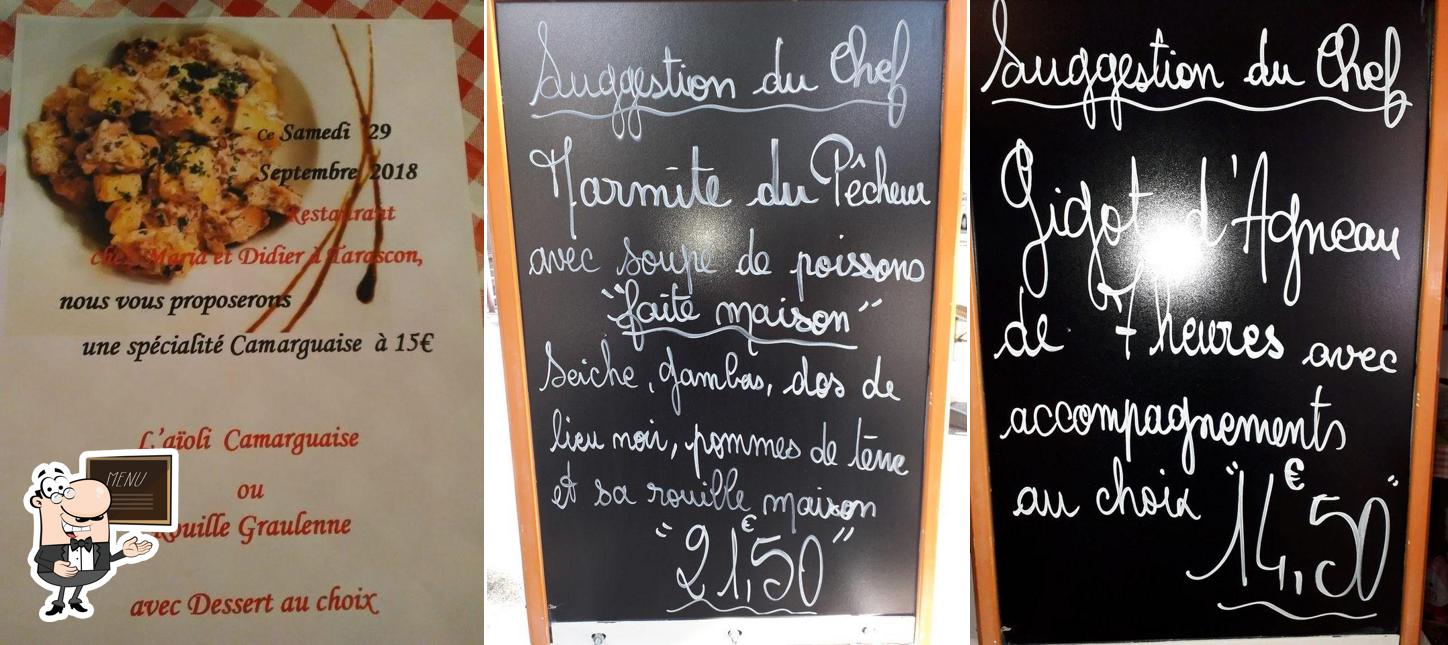 ce Samedi 29
Septembre 2018
Restaurant
chez Maria et Didier à Tarascon,
nous vous proposerons
une spécialité Camarguaise à 15€
L'aïoli Camarguaise
ou
Rouille Graulenne
avec Dessert au choix
MENU
Suggestion du Chef
Marmite du Pêcheur
avec soupe de poissons
"faite maison"
Seiche, gambas, dos de
lieu noir, pommes de terre
et sa rouille maison
"21,€50"
Suggestion du Chef
Gigot d'Agneau
de 7 heures avec
accompagnements
au choix "14,€50"